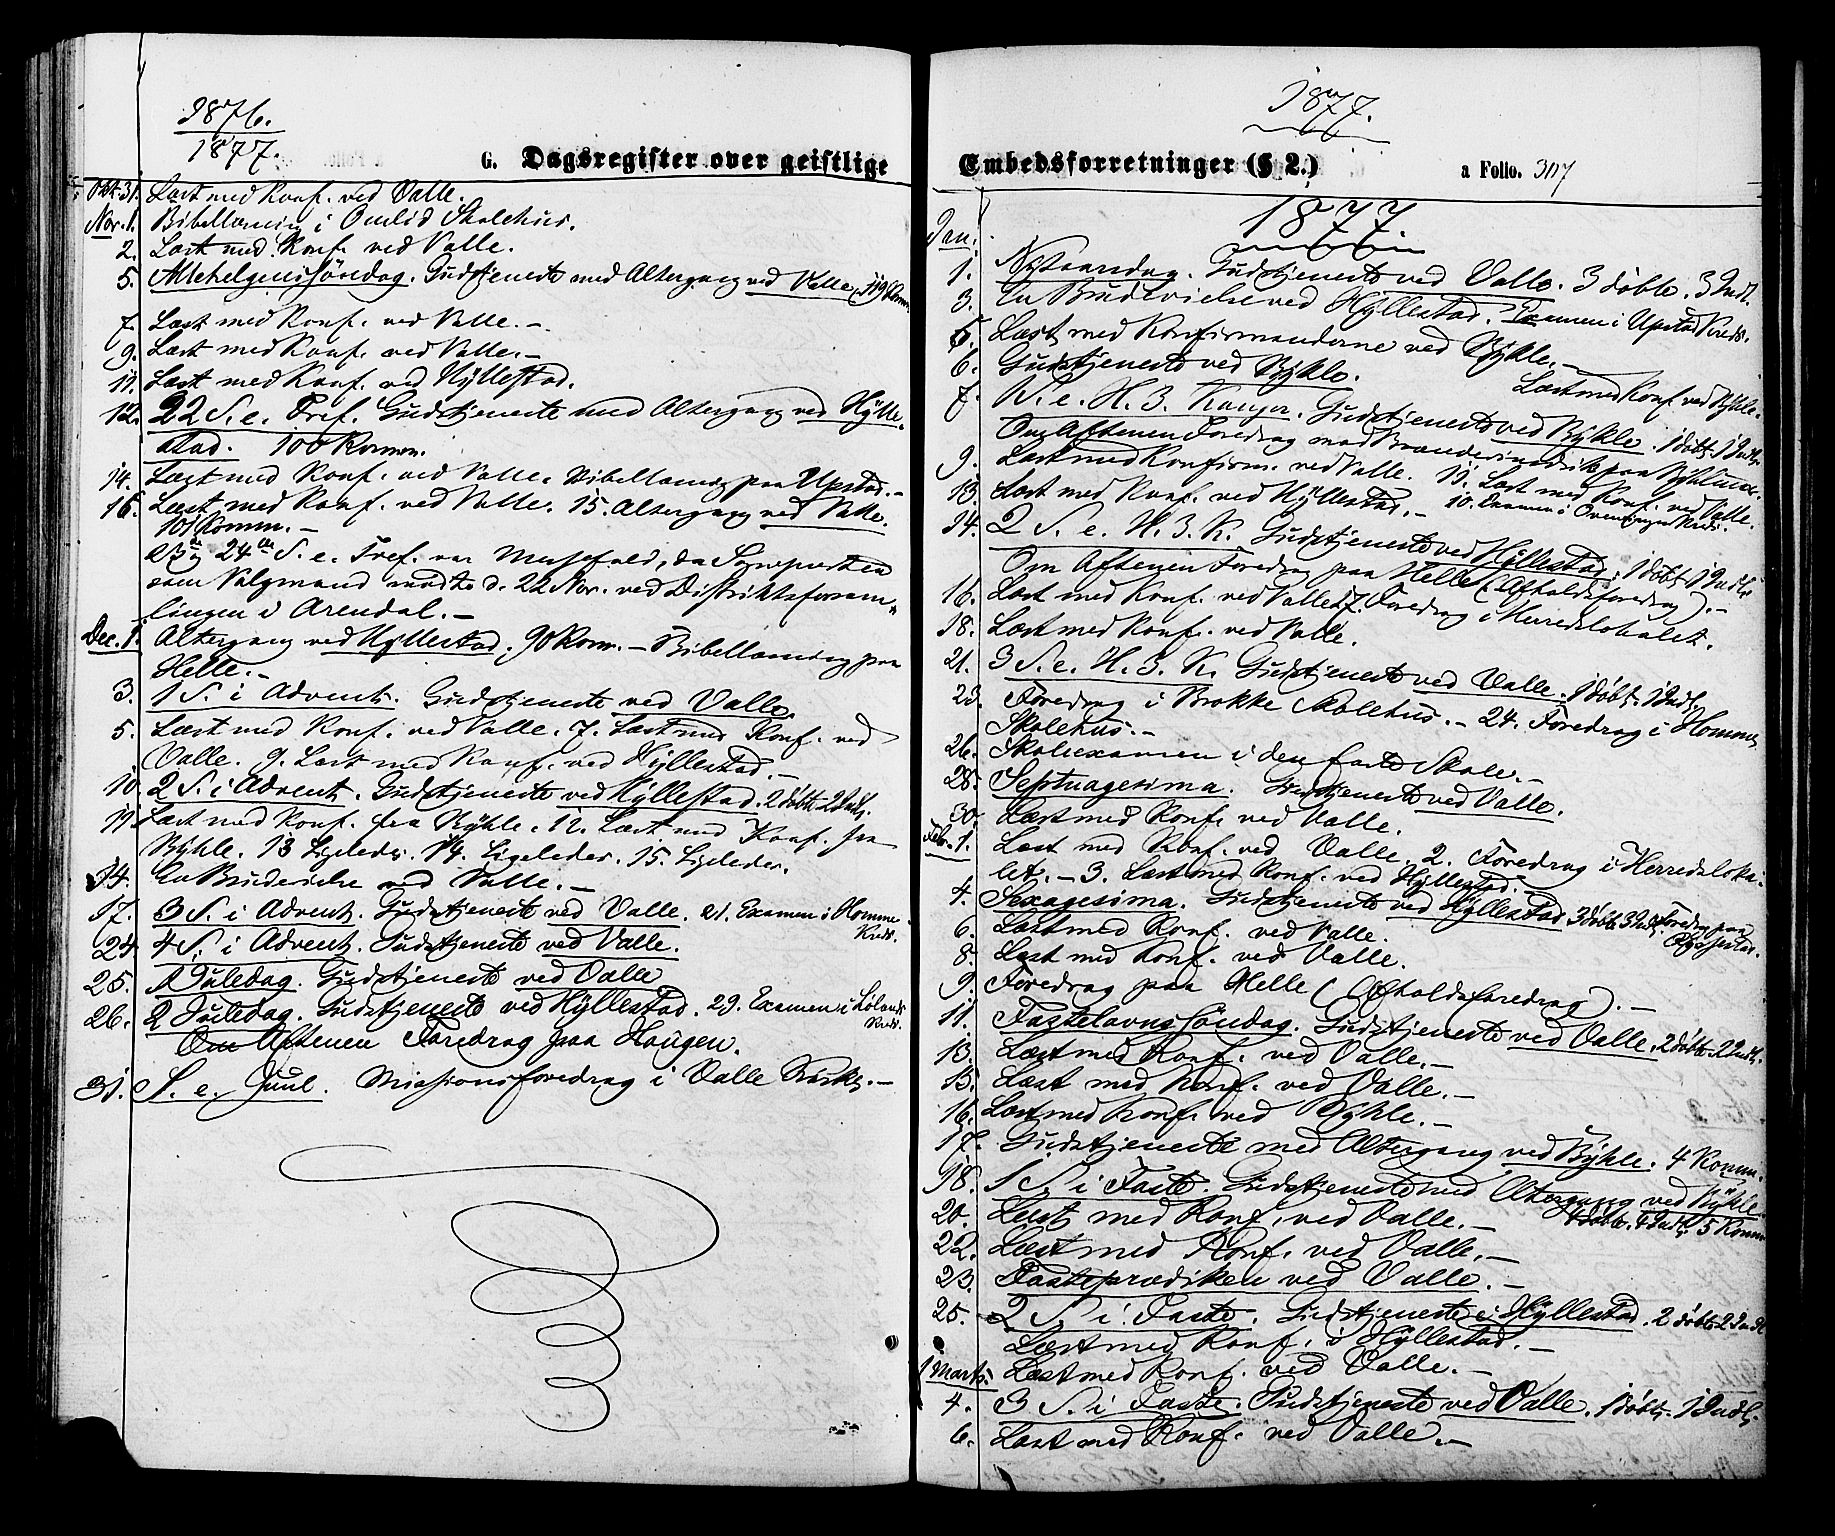 1876.
1877.
G. Dagsregister over geistlige
Okt. 31. Læst med Konf. ved Valle.
Nov. 1. Bibellæsning i Omlid Skolehus.
2. Læst med Konf. ved Valle.
5. Allehelgenssöndag. Gudstjeneste med Altergang ved Valle, 119 Komm.
7. Læst med Konf. ved Valle. –
9. Læst med Konf. ved Valle. –
11. Læst med Konf. ved Hyllestad.
12. 22 S. e. Tref. Gudstjeneste med Altergang ved Hylle-
stad. 100 Komm.
14. Læst med Konf. ved Valle. Bibellæsng paa Upstad. –
16. Læst med Konf. ved Valle. 15. Altergang ved Valle.
101 Komm. –
23de og 24de S. e. Tref. var Messefald, da Sognepresten
som Valgmand mødte d. 22 Nov. ved Distriktsforsam-
lingen i Arendal. –
Dec. 1. Altergang ved Hyllestad. 90 Kom. – Bibellæsning paa
Helle. –
3. 1 S. i Advent. Gudstjeneste ved Valle.
5. Læst med Konf. ved Valle. 7. Læst med Konf. ved
Valle. 9. Læst med Konf. ved Hyllestad. –
10. 2 S. i Advent. Gudstjeneste ved Hyllestad. 2 döbt. 2 Indl.
11. Læst med Konf. fra Bykle. 12. Læst med Konf. fra
Bykle. 13 Ligeledes. 14. Ligeledes. 15. Ligeledes.
14. En Brudevielse ved Valle. –
17. 3 S. i Advent. Gudstjeneste ved Valle. 21. Examen i Homme
Kreds.
24. 4 S. i Advent. Gudstjeneste ved Valle.
25. 1 Juledag. Gudstjeneste ved Valle
26. 2 Juledag. Gudstjeneste ved Hyllestad. 29. Examen i Lølands
Kreds.
Om Aftenen Foredrag paa Haugen.
31. S. e. Juul. Missionsforedrag i Valle Kirke. –
1877.
Embedsforretninger (§ 2.)
a Folio. 307
1877.
Jan.
1. Nytaarsdag. Gudstjeneste ved Valle. 3 döbte. 3 Indl.
3. En Brudevielse ved Hyllestad. Examen i Upstad Kreds.
5. Læst med Konfirmanderne ved Bykle. –
6. Gudstjeneste ved Bykle. Læst med Konf. ved Bykle.
7. S. e. H. 3. Konger. Gudstjeneste ved Bykle. 1 döbt. 1 Indl.
Om Aftenen Foredrag mod paa
9. Læst med Konfirm. ved Valle. 11. Læst med Konf. ved Valle.
13. Læst med Konf. ved Hyllestad. – 10. Examen i Kreds.
14. 2 S. e. H. 3. K. Gudstjeneste ved Hyllestad. 1 döbt. 1 Indl.
Om Aftenen Foredrag paa Helle (Afholdsforedrag). –
16. Læst med Konf. ved Valle. 17. Foredrag i Herredslokalet.
18. Læst med Konf. ved Valle.
21. 3 S. e. H. 3. K. Gudstjeneste ved Valle. 1 döbt. 1 Indl.
23. Foredrag i Brokke Skolehus. – 24. Foredrag i Homme
Skolehus. –
26. Skoleexamen i den faste Skole. –
28. Septuagesima. Gudstjeneste ved Valle.
30. Læst med Konf. ved Valle.
Febr. 1. Læst med Konf. ved Valle. 2. Foredrag i Herredsloka-
let. – 3. Læst med Konf. ved Hyllestad. –
4. Sexagesima. Gudstjeneste ved Hyllestad 3 döbt 3 Indl. Foredrag paa
6. Læst med Konf. ved Valle.
8. Læst med Konf. ved Valle.
9. Foredrag paa Helle (Afholdsforedrag). –
11. Fastelavnssöndag. Gudstjeneste ved Valle. 2 döbt. 2 Indl.
13. Læst med Konf. ved Valle. –
15. Læst med Konf. ved Valle. –
16. Læst med Konf. ved Bykle. –
17. Gudstjeneste med Altergang ved Bykle. 4 Komm.
18. 1 S. i Faste. Gudstjeneste med Altergang ved Bykle.
4 döbt. 4 Indl. 5 Komm
20. Læst med Konf. ved Valle. –
22. Læst med Konf. ved Valle. –
23. Fasteprædiken ved Valle. –
25. 2 S. i Faste. Gudstjeneste i Hyllestad. 2 döbt 2 Indl
Læst med Konf. i Hyllestad. –
1 Marts. Læst med Konf. ved Valle. –
4. 3 S. i Faste. Gudstjeneste ved Valle. 1 döbt. 1 Indl.
6. Læst med Konf. ved Valle. –